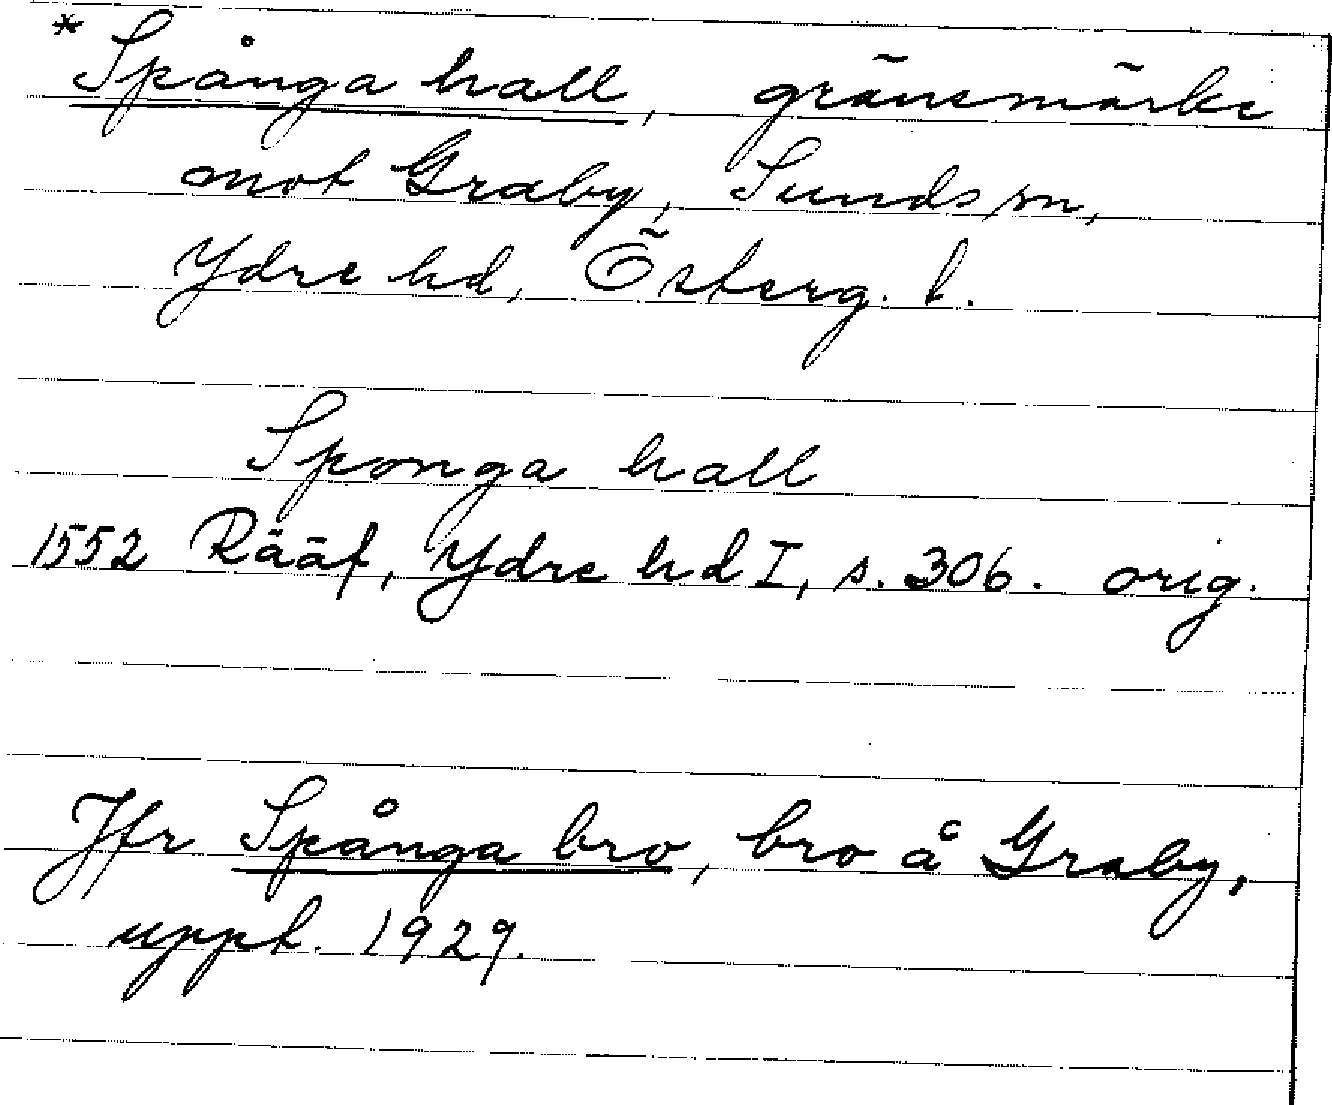 * Spånga hall, gränsmärke
mot Graby, Sunds sn,
Ydre hd, Österg. l.
Sponga hall
1552 Rääf, Ydre hd I, s. 306. orig.
Jfr Spånga bro, bro å Graby,
uppt. 1929.